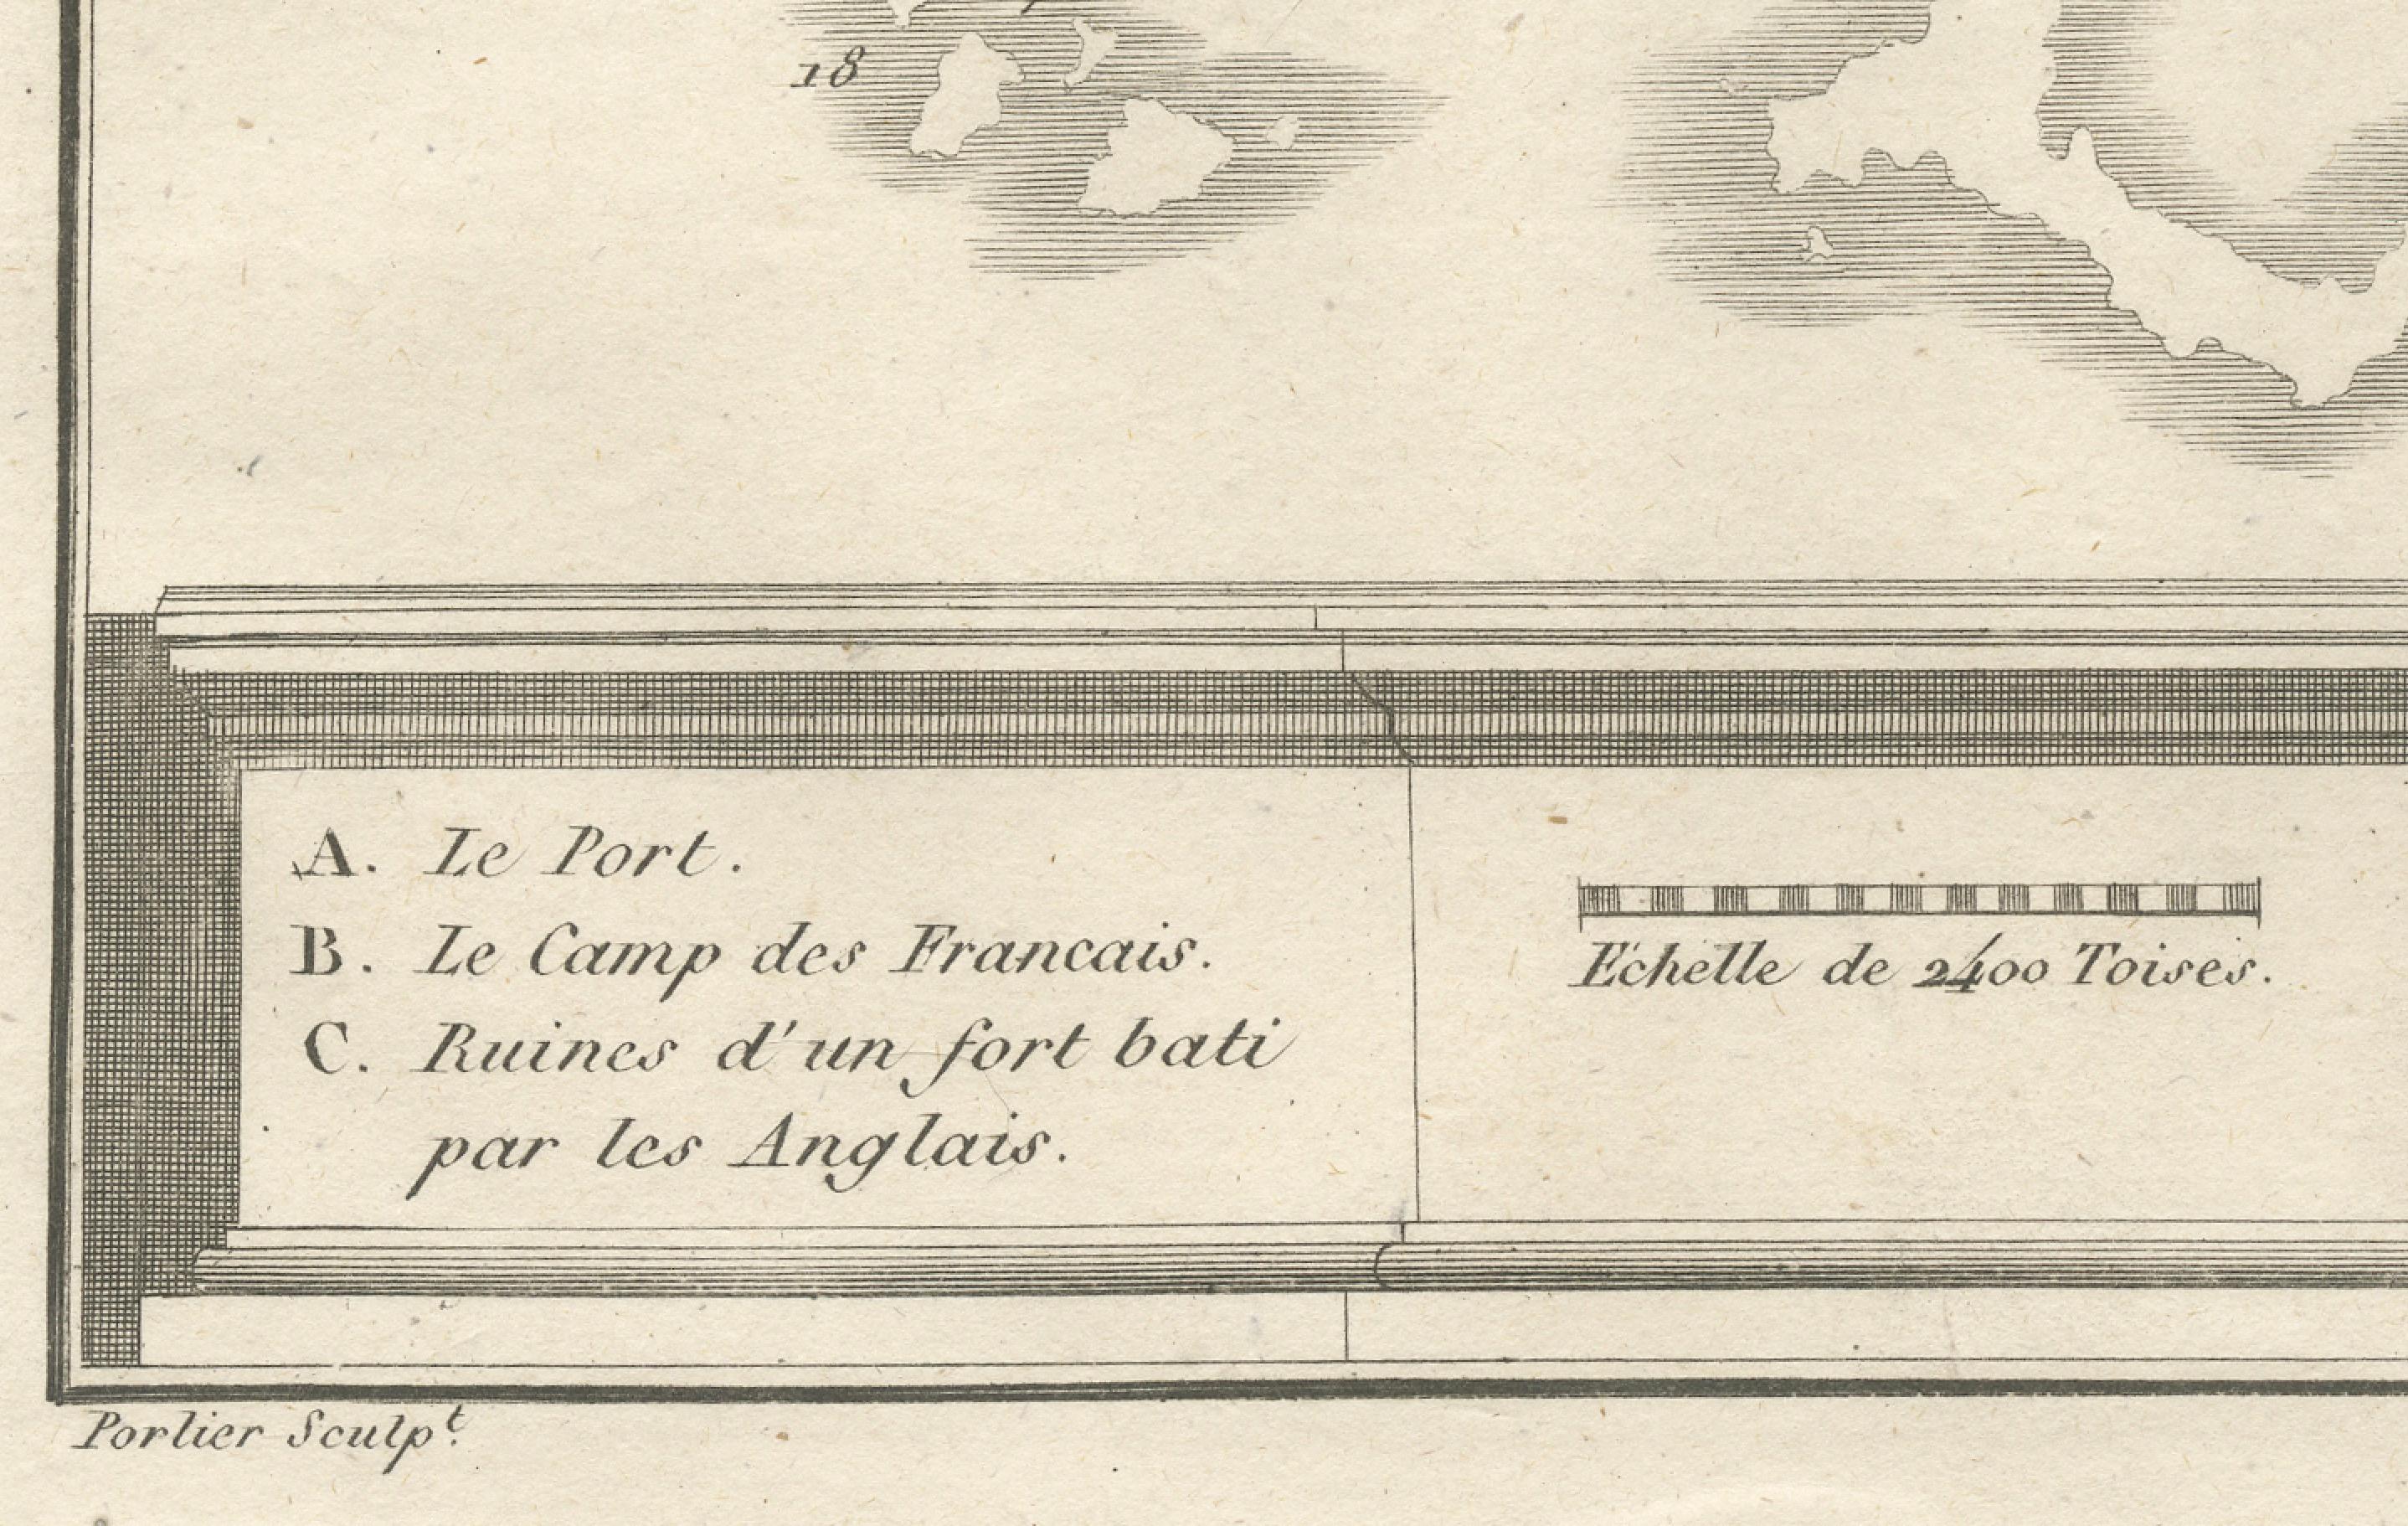 18
A. Le Port.
B. Le Camp des Francais.
C. Ruines d'un fort bati
par les Anglais.
Echelle de 2400 Toises.
Porlier Sculpt.